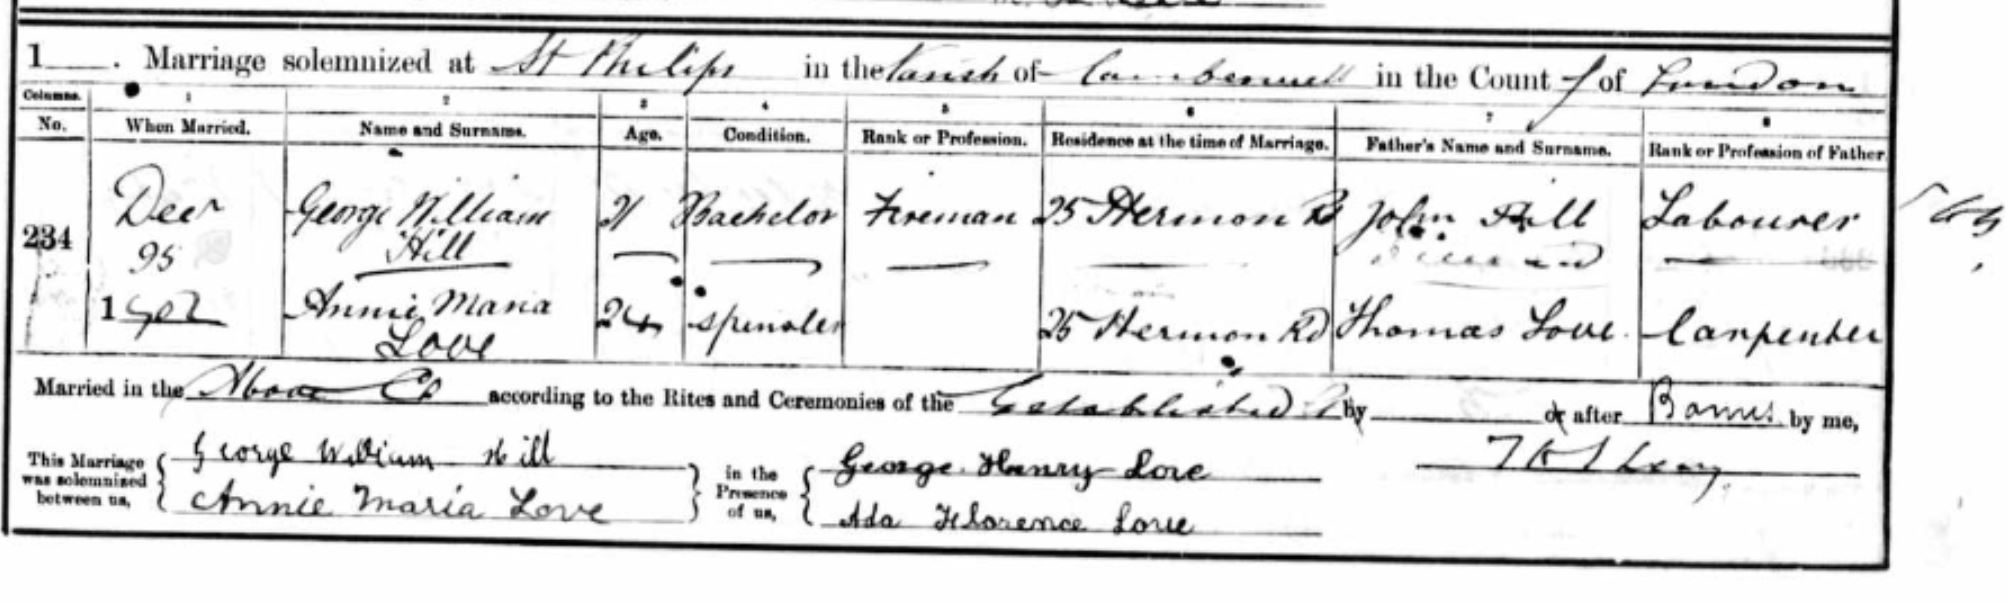 1 . Marriage solemnized at St Philips in the Parish of Camberwell in the County of London
Columns. 1 2 3 4 5 6 7 8
No. When Married. Name and Surname. Age. Condition. Rank or Profession. Residence at the time of Marriage. Father's Name and Surname. Rank or Profession of Father
234 Decr 25 1902 George William Hill 21 Bachelor Fireman 25 Hermon Rd John Hill Labourer
Annie Maria Love 24 Spinster 25 Hermon Rd Thomas Love Carpenter
Married in the Above Ch according to the Rites and Ceremonies of the Established by or after Banns by me,
This Marriage was solemnized between us, George William Hill in the Presence of us, George Henry Love
Annie Maria Love Ada Florence Love